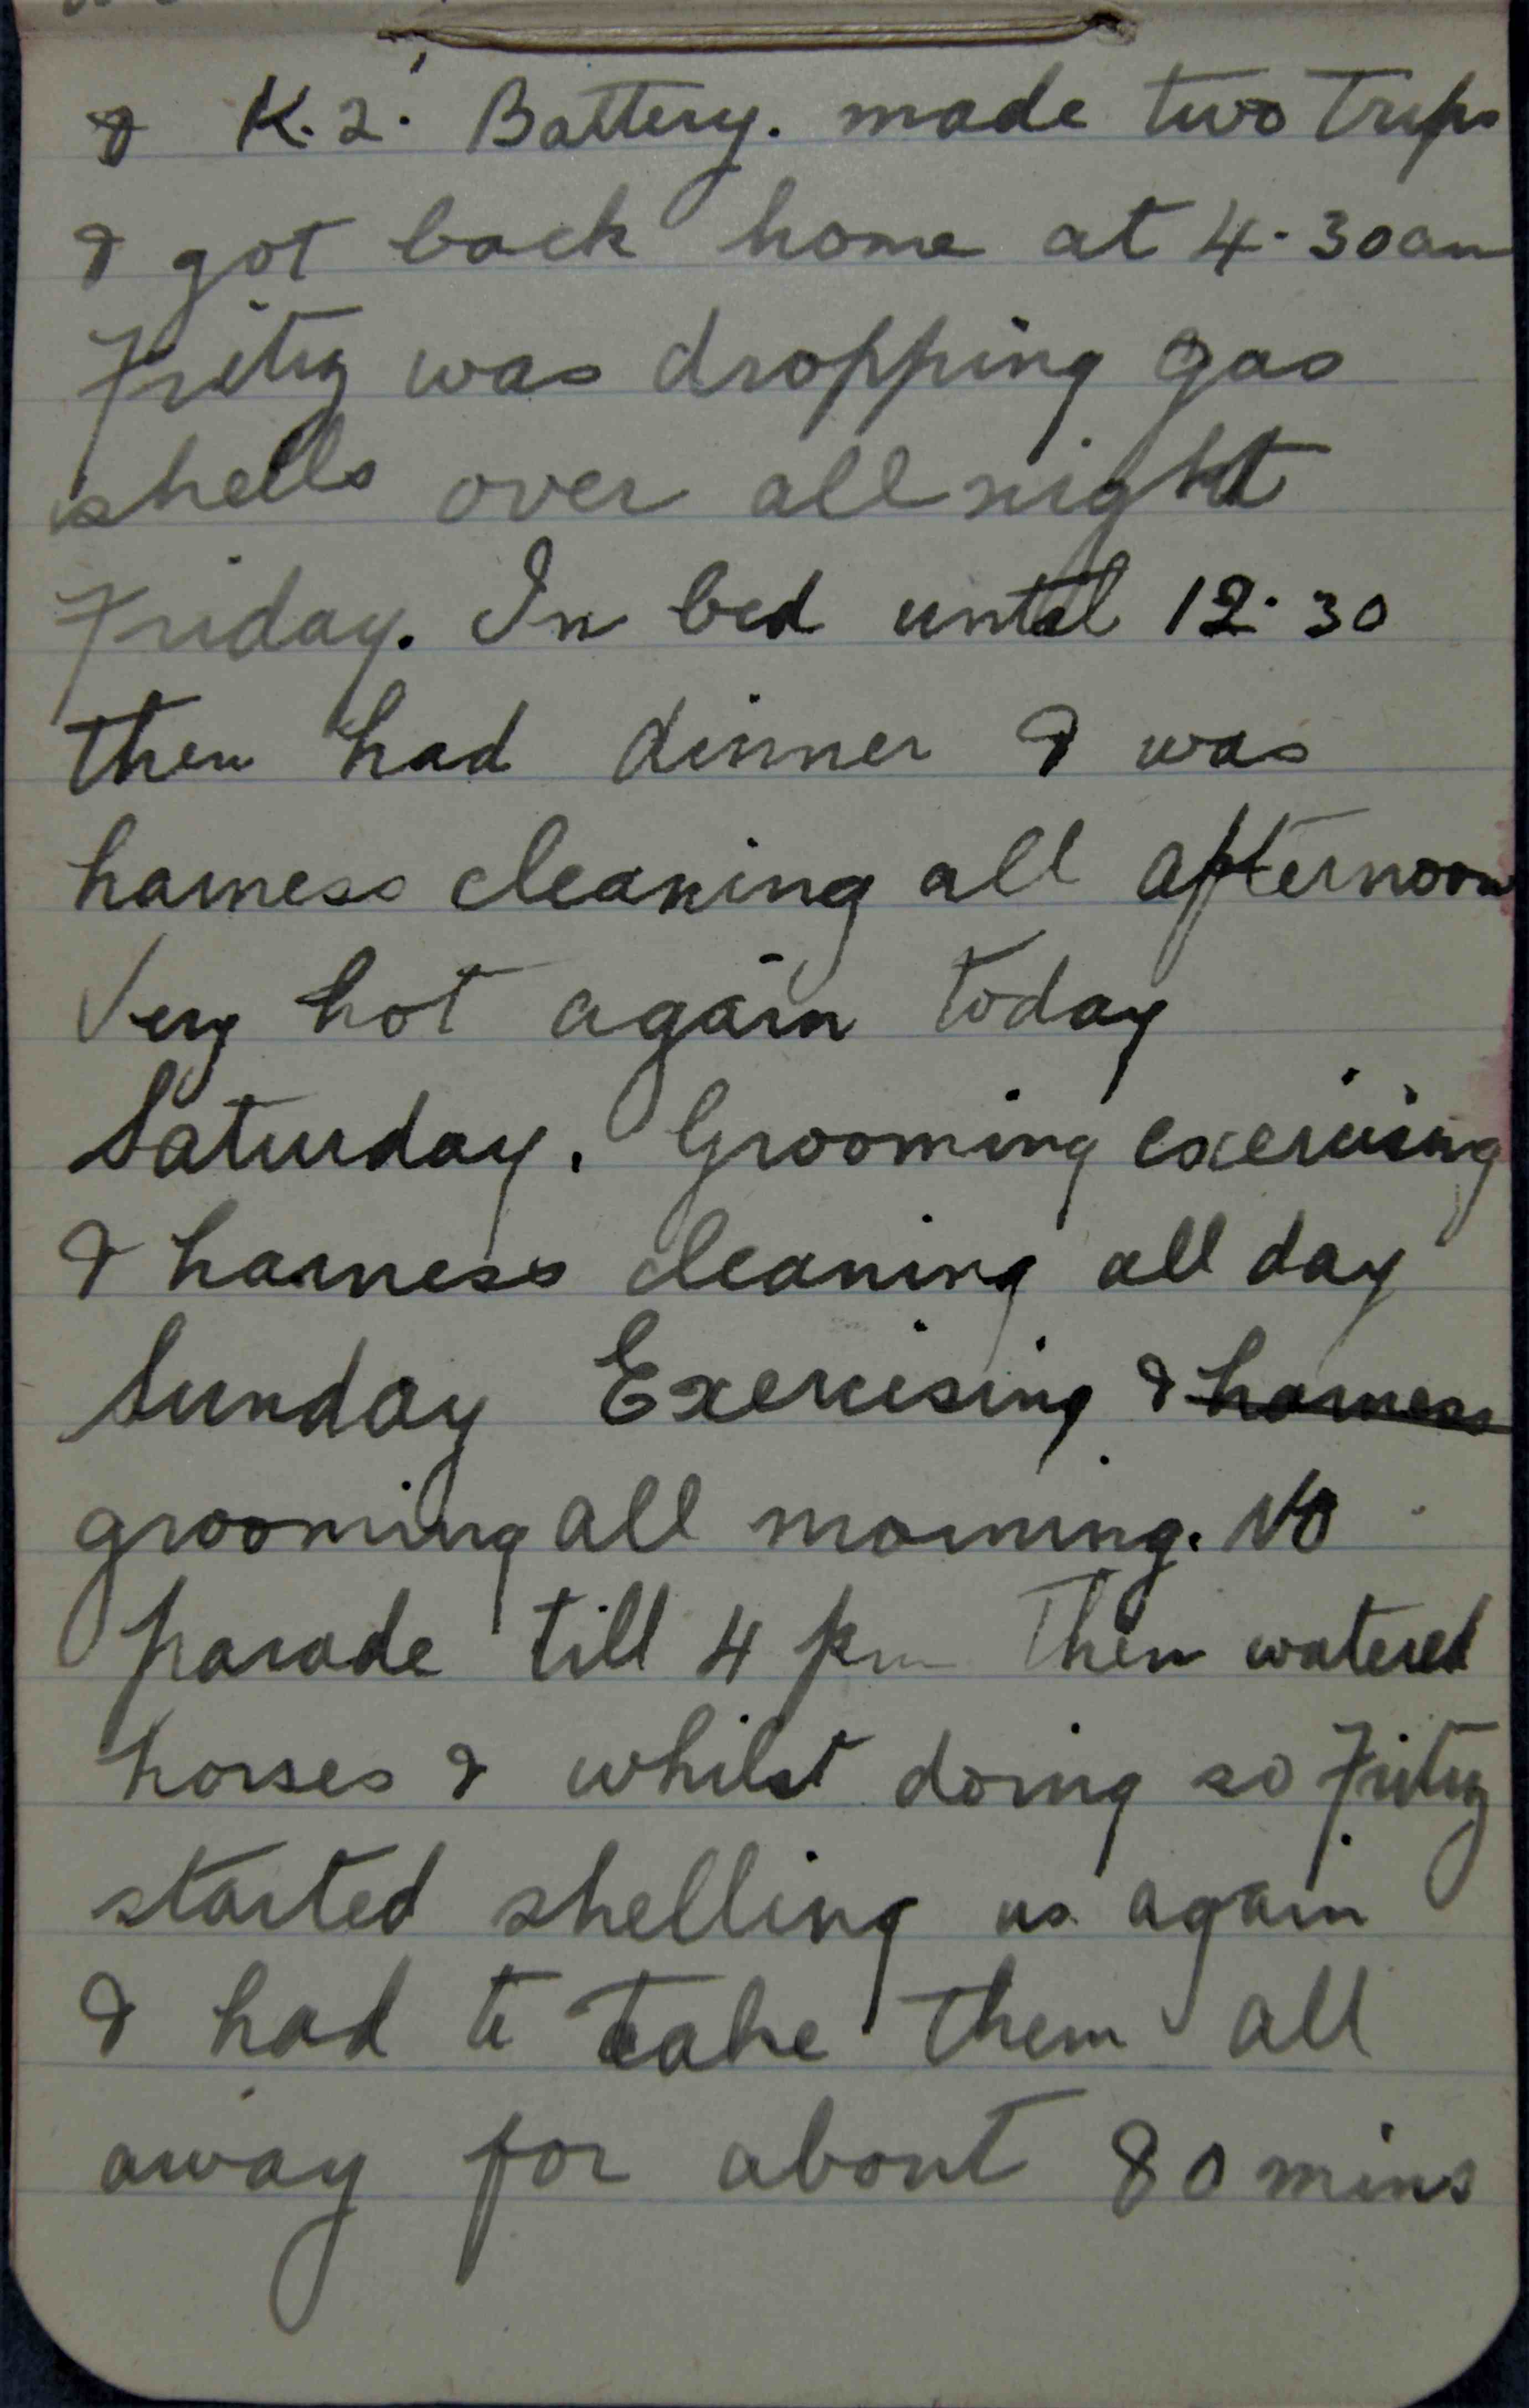 & K.2. Battery. made two trips
& got back home at 4.30am
Fritz was dropping gas
shells over all night
Friday. In bed until 12.30
then had dinner & was
harness cleaning all afternoon
Very hot again today
Saturday. Grooming exercising
& harness cleaning all day
Sunday Exercising & harness
grooming all morning. No
parade till 4 pm Then watered
horses & whilst doing so Fritz
started shelling us again
& had to take them all
away for about 80 mins